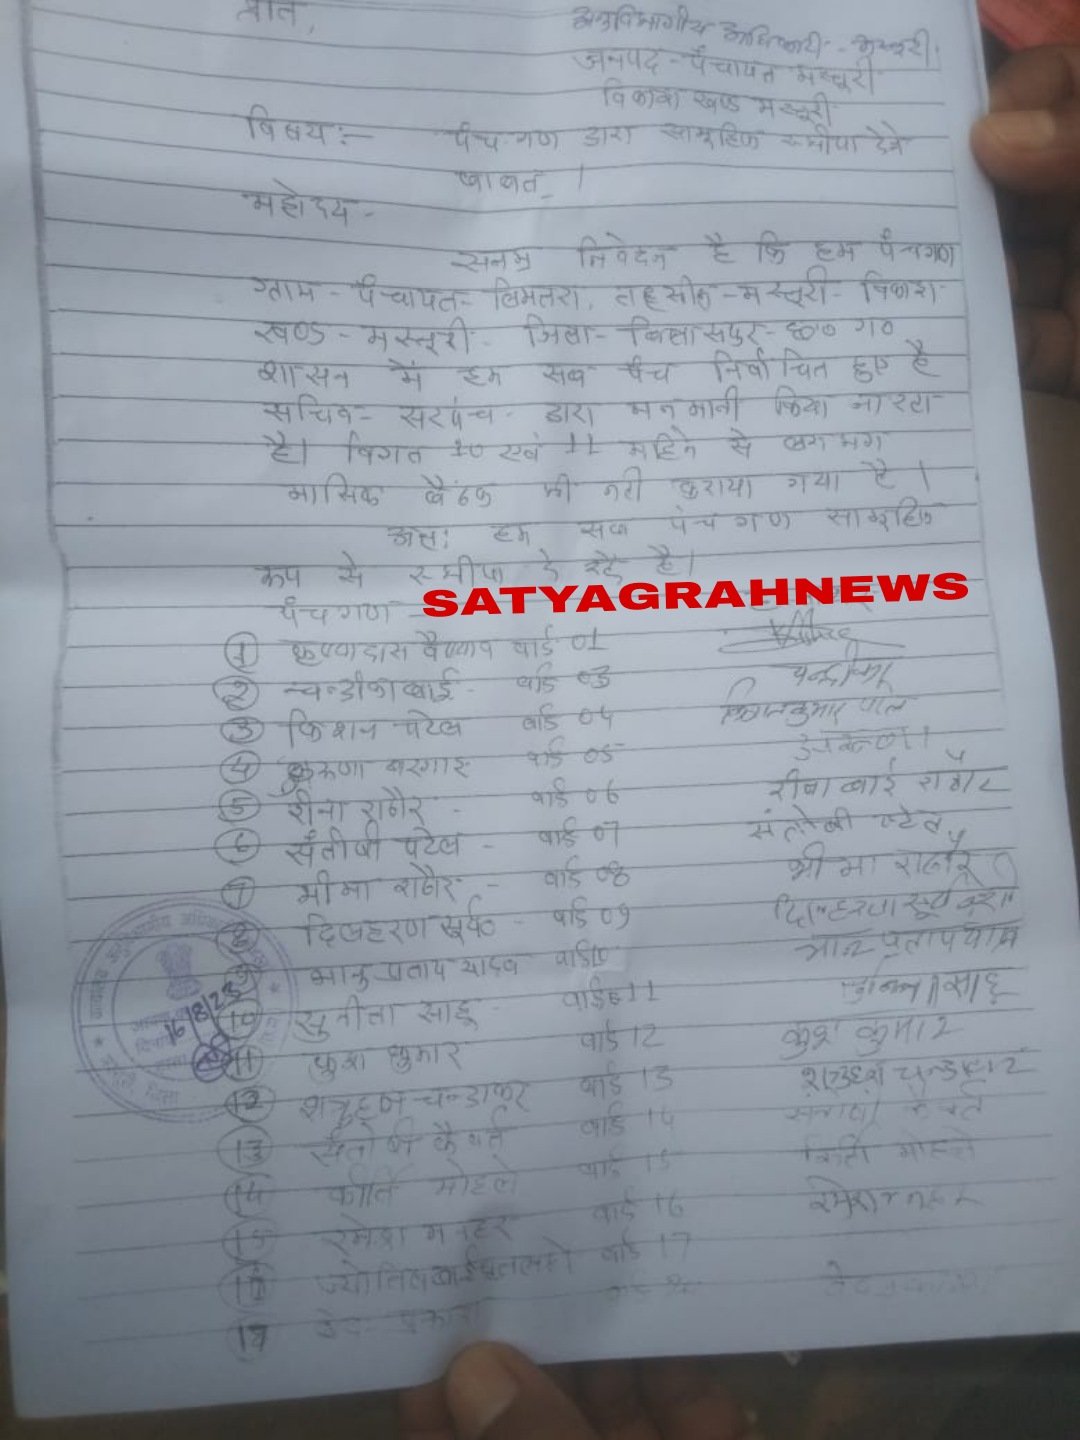 प्रति,
अनुविभागीय अधिकारी - मस्तूरी
जनपद - पंचायत मस्तूरी
विकास खण्ड मस्तूरी
विषय :- पंच गण द्वारा सामूहिक स्तीपा देने
बाबत् ।
महोदय -
सनम्र निवेदन है कि हम पंचगण
ग्राम - पंचायत - लिमतरा, तहसील - मस्तूरी - विकाश
खण्ड - मस्तूरी - जिला - बिलासपुर - छ० ग०
शासन में हम सब पंच निर्वाचित हुए है
सचिव - सरपंच - द्वारा मनमानी किया जा रहा
है। विगत 10 एवं 11 महिने से लगभग
मासिक बैठक भी नही कराया गया है ।
अतः हम सब पंच गण सामूहिक
रूप से स्तीपा दे रहें है।
पंचगण -
SATYAGRAHNEWS
① कृष्णादास वैष्णव वार्ड 01
② चन्द्रीका बाई - वार्ड 03
③ किशन पटेल वार्ड 04
④ करूणा वार्ड 05
⑤ रीना राठौर - वार्ड 06 राठौर
⑥ संतोषी पटेल - वार्ड 07 संतोषी पटेल
⑦ भीमा राठौर - वार्ड 08 भीमा राठौर
⑧ दिलहरण सूर्य० - वार्ड 09 दिलहरण सूर्यवंशी
⑨ भानु प्रताप यादव वार्ड 10 भानु प्रताप यादव
⑩ सुनीता साहू - वार्ड 11 सुनीता साहू
⑪ कुश कुमार वार्ड 12 कुश कुमार
⑫ शत्रुहन चन्द्राकर वार्ड 13 चन्द्राकर
⑬ संतोषी कैवर्त वार्ड 14 कैवर्त
⑭ कीर्ति मोहले वार्ड 15 मोहले
⑮ रमेश मनहर वार्ड 16 रमेश मनहर
⑯ ज्योति बाई वार्ड 17
⑰ वेद प्रकाश
16/8/23